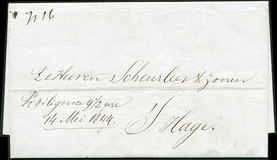 No 16
de Heeren Scheurleer & Zonen
Diligence 9½ ure
14 Mei 1844.
'S Hage.